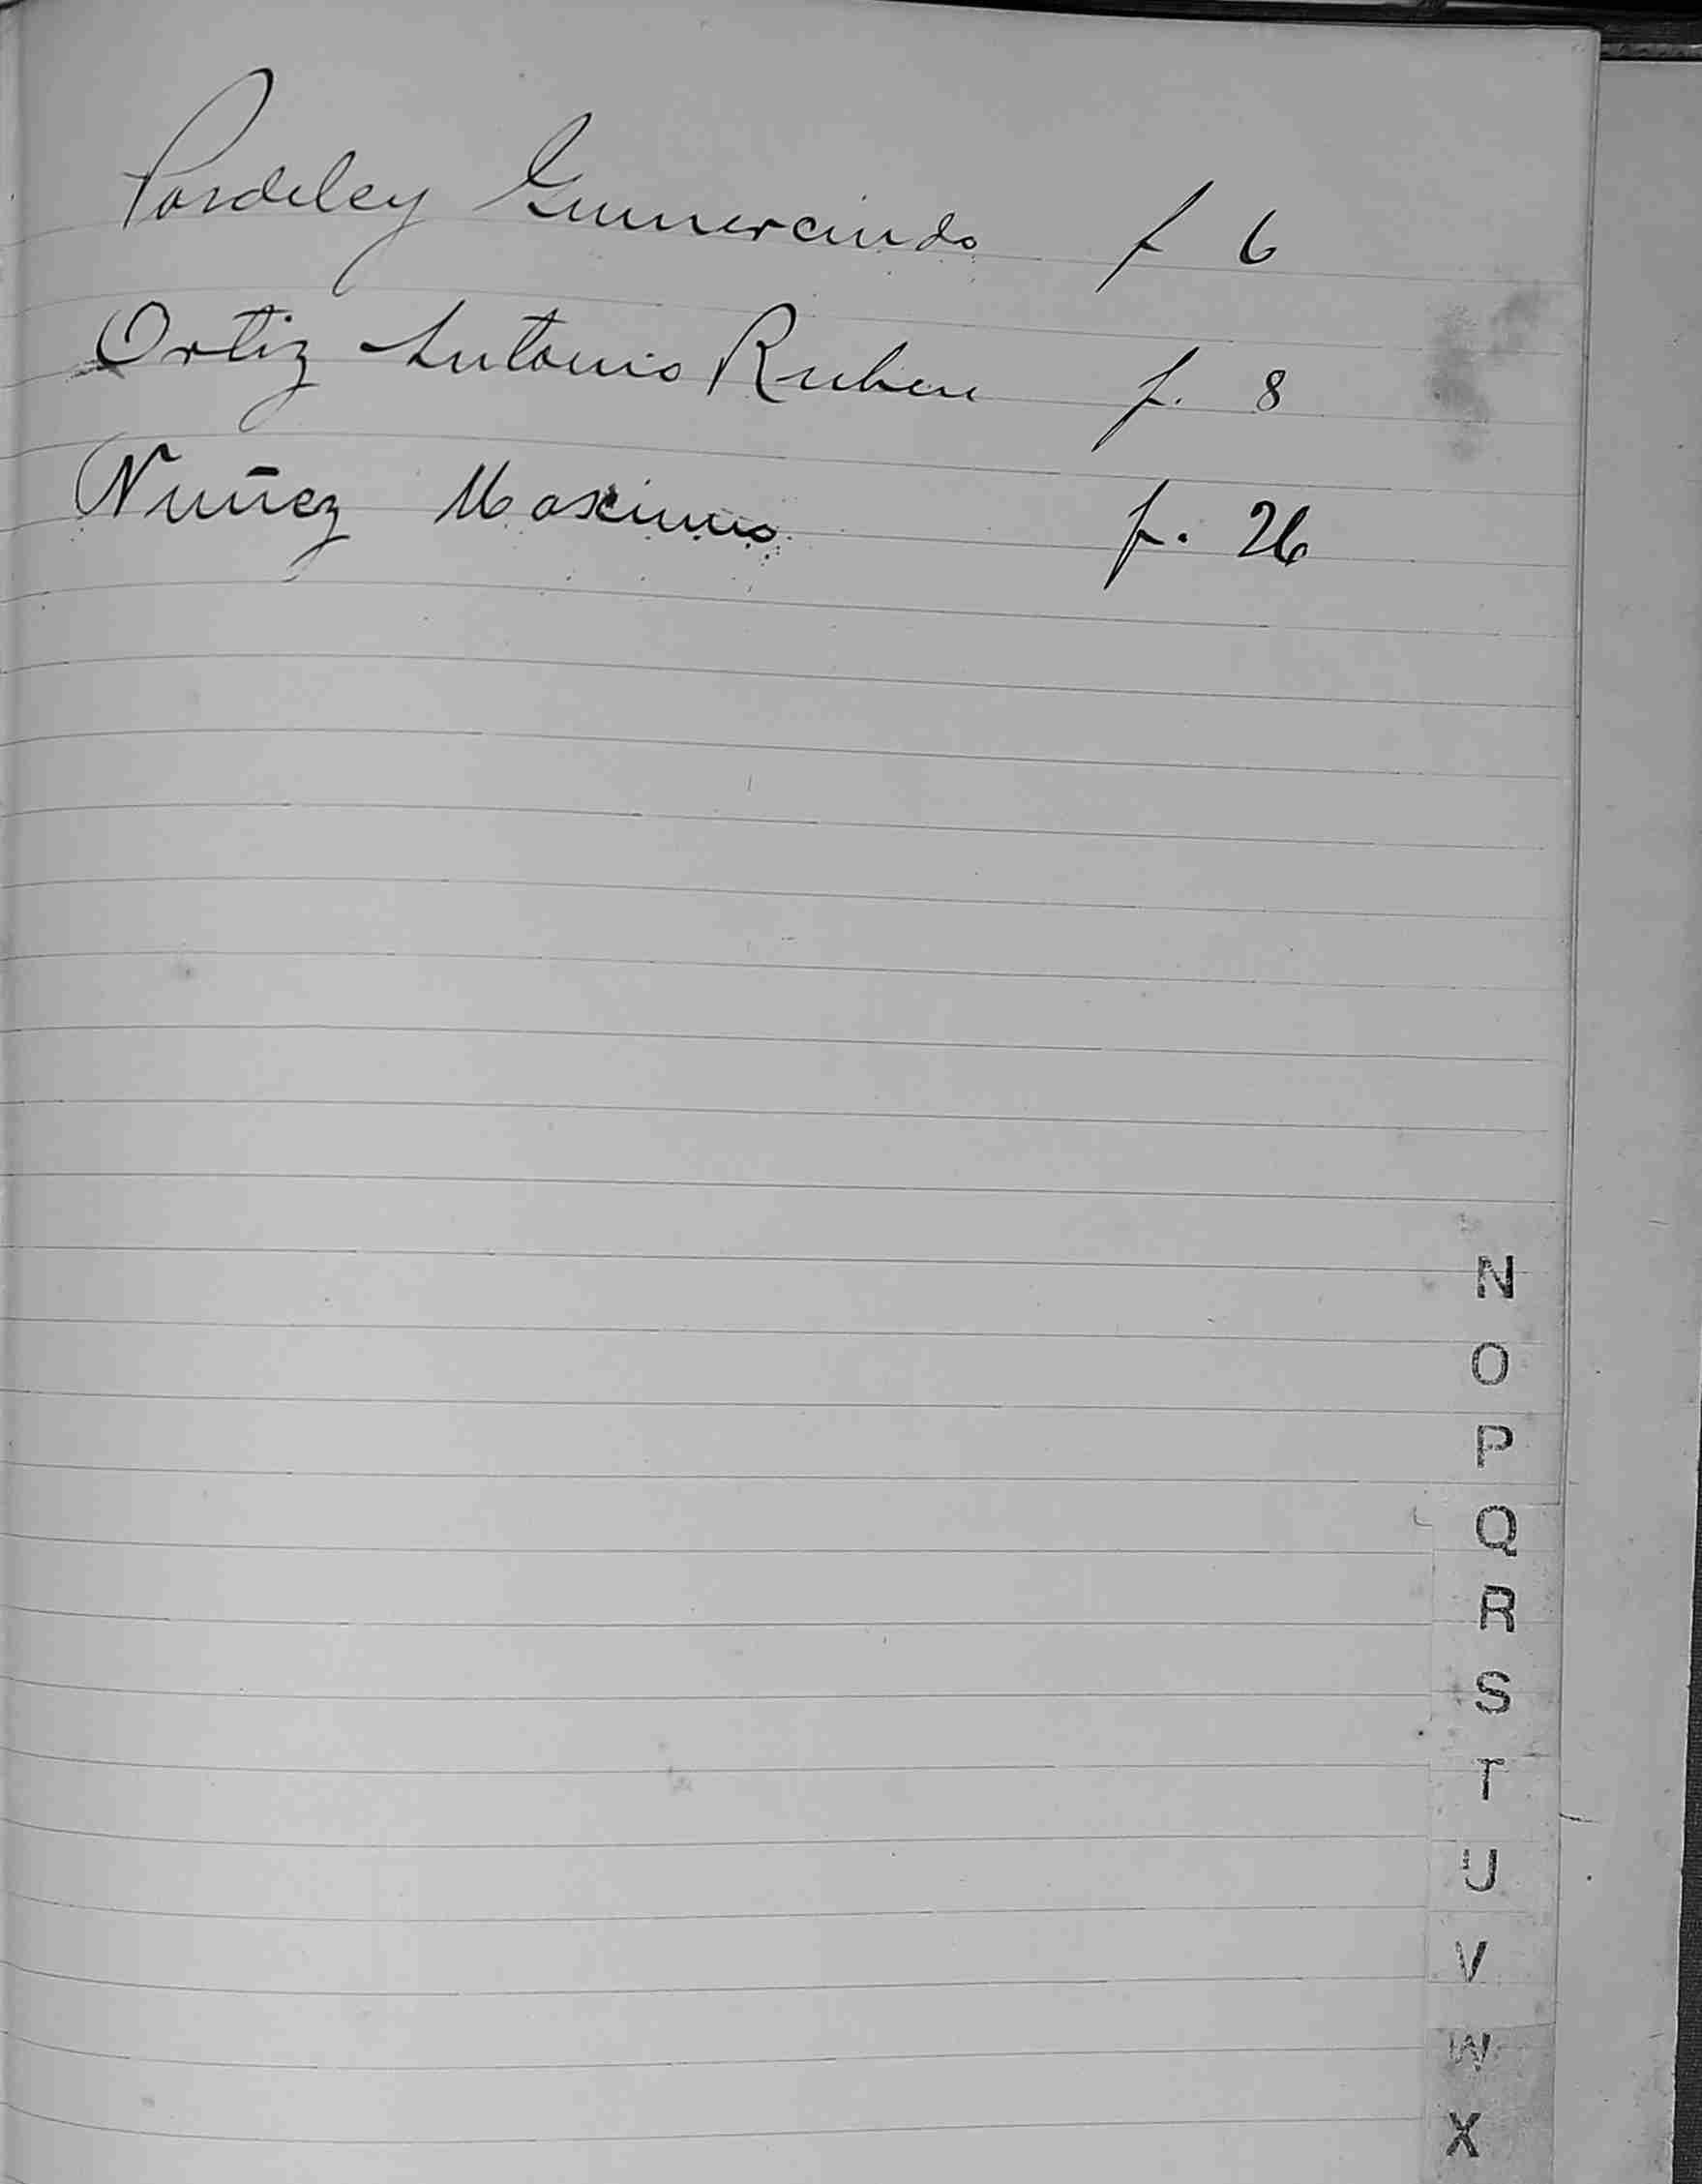 Pardeley Gumercindo f 6
Ortiz Antonio Ruben f. 8
Nuñez Maximo f. 26
N
O
P
Q
R
S
T
U
V
W
X